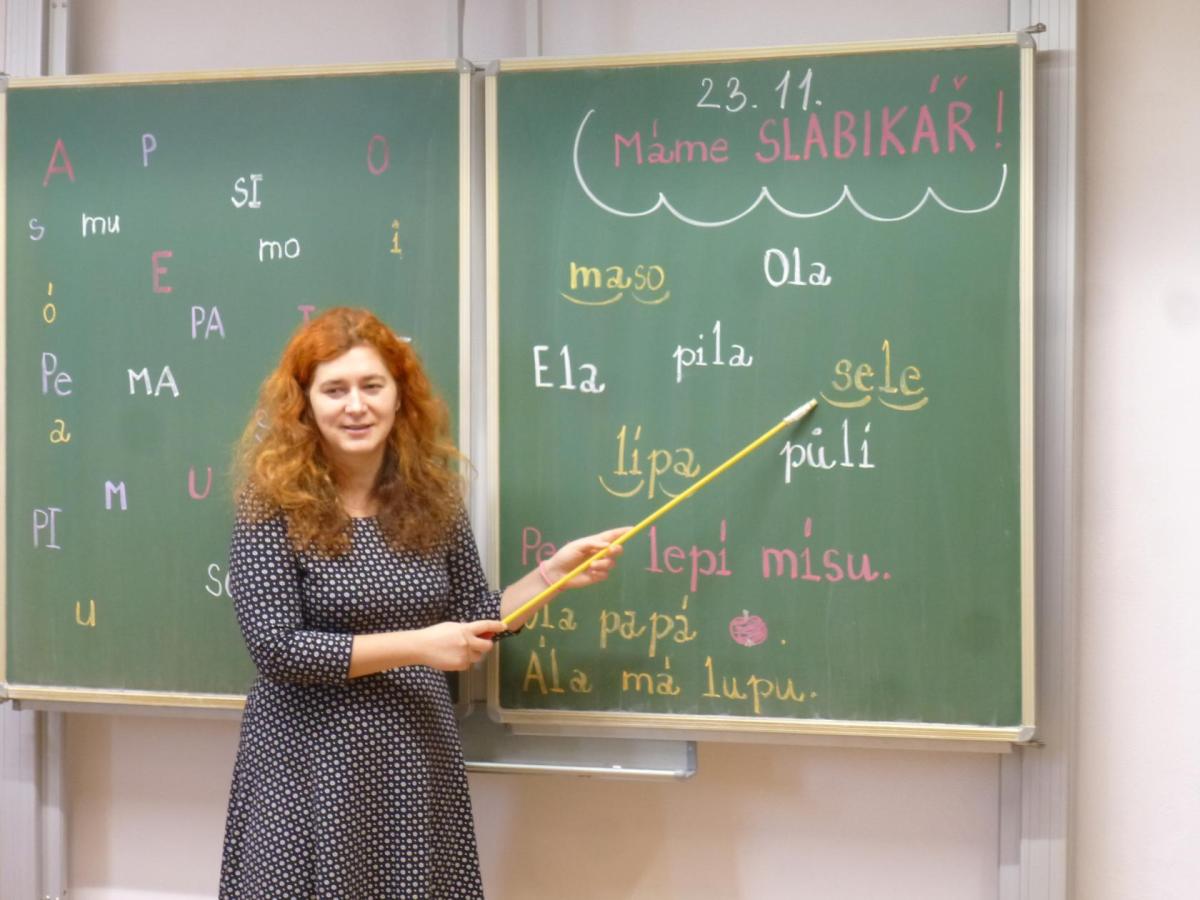 A P O
s mu SI
E mo í
ó PA
Pe MA
a
M U
PI
u
23. 11.
Máme SLABIKÁŘ!
maso Ola
Ela pila sele
lípa půlí
lepí mísu.
papá .
Ála má lupu.